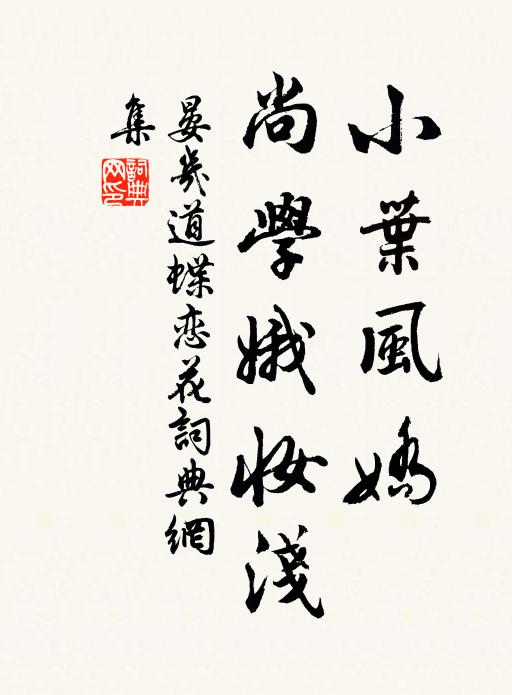 小葉風嬌
尚學娥妝淺
晏幾道蝶恋花詞典網
集
詞典網印